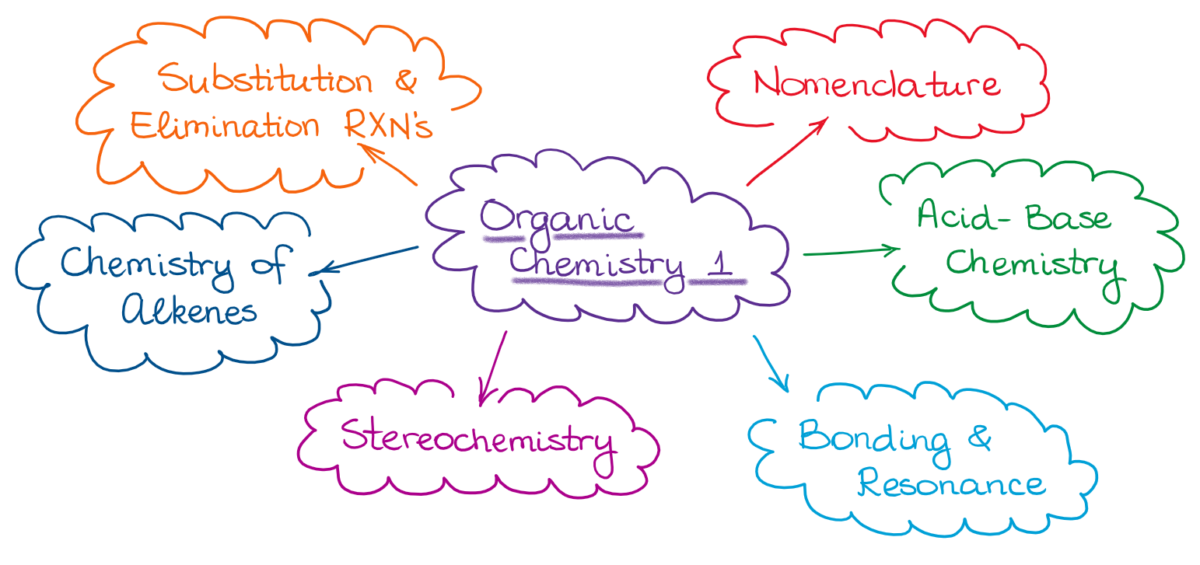 Substitution &
Elimination RXN's
Nomenclature
Organic
Chemistry 1
Acid-Base
Chemistry
Chemistry of
Alkenes
Stereochemistry
Bonding &
Resonance